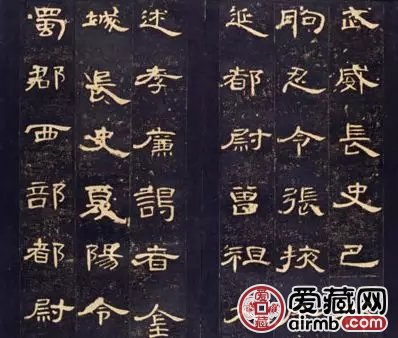 武威長史巴
朐忍令張掖
延都尉曾祖父
述孝廉謁者金
城長史夏陽令
蜀郡西部都尉
爱藏网
airmb.com